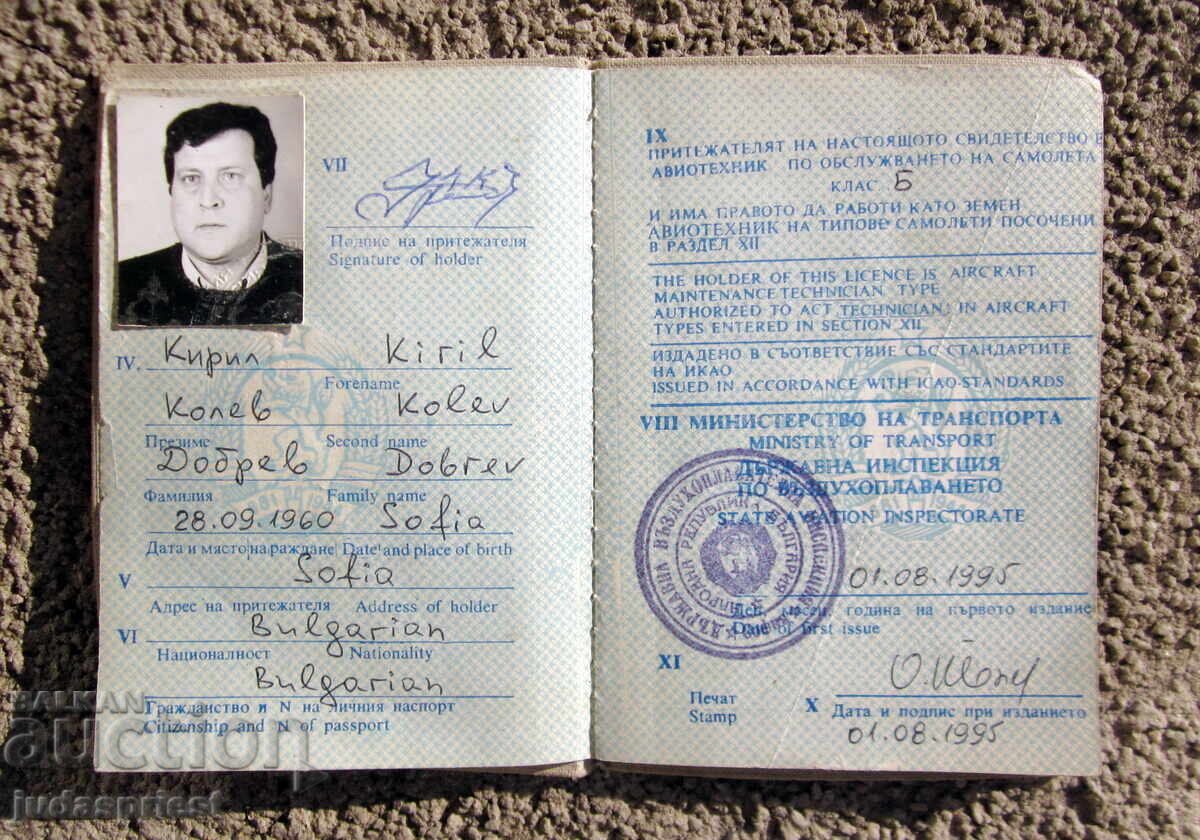 VII
Подпис на притежателя
Signature of holder
IV. Кирил Kiril
Forename
Колев Kolev
Презиме Second name
Добрев Dobrev
Фамилия Family name
28.09.1960 Sofia
Дата и място на раждане Date and place of birth
V Sofia
Адрес на притежателя Address of holder
VI Bulgarian
Националност Nationality
Bulgarian
Гражданство и N на личния паспорт
Citizenship and N of passport
IX
ПРИТЕЖАТЕЛЯТ НА НАСТОЯЩОТО СВИДЕТЕЛСТВО Е
АВИОТЕХНИК ПО ОБСЛУЖВАНЕТО НА САМОЛЕТА
КЛАС Б
И ИМА ПРАВОТО ДА РАБОТИ КАТО ЗЕМЕН
АВИОТЕХНИК НА ТИПОВЕ САМОЛЕТИ ПОСОЧЕНИ
В РАЗДЕЛ XII
THE HOLDER OF THIS LICENCE IS AIRCRAFT
MAINTENANCE TECHNICIAN TYPE
AUTHORIZED TO ACT TECHNICIAN: IN AIRCRAFT
TYPES ENTERED IN SECTION XII
ИЗДАДЕНО В СЪОТВЕТСТВИЕ СЪС СТАНДАРТИТЕ
НА ИКАО
ISSUED IN ACCORDANCE WITH ICAO-STANDARDS
VIII МИНИСТЕРСТВО НА ТРАНСПОРТА
MINISTRY OF TRANSPORT
ДЪРЖАВНА ИНСПЕКЦИЯ
ПО ВЪЗДУХОПЛАВАНЕТО
STATE AVIATION INSPECTORATE
01.08.1995
Ден, месец, година на първото издание
Date of first issue
XI
Печат
Stamp
X Дата и подпис при изданието
01.08.1995
BALKAN
auction
judaspriest